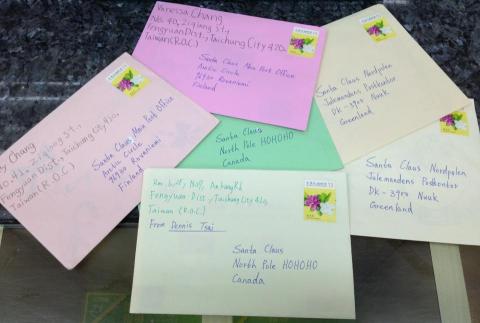 Vanessa Chang
No. 40, Ziqiang St.,
Fengyuan Dist., Taichung City 420,
Taiwan (R.O.C)
Santa Claus Main Post Office
Arctic Circle
96930 Rovaniemi
Finland
Santa Claus Nordpolen
Julemandens Postkontor
DK-3900 Nuuk
Greenland
Chang
40, Ziqiang St.,
Fengyuan Dist., Taichung City 420,
Taiwan (R.O.C)
Santa Claus Main Post Office
Arctic Circle
96930 Rovaniemi
Finland
Santa Claus
North Pole HOHOHO
Canada
Santa Claus Nordpolen
Julemandens Postkontor
DK-3900 Nuuk
Greenland
Fengyuan Dist., Taichung City 420,
Taiwan (R.O.C)
From Dennis Tsai
Santa Claus
North Pole HOHOHO
Canada